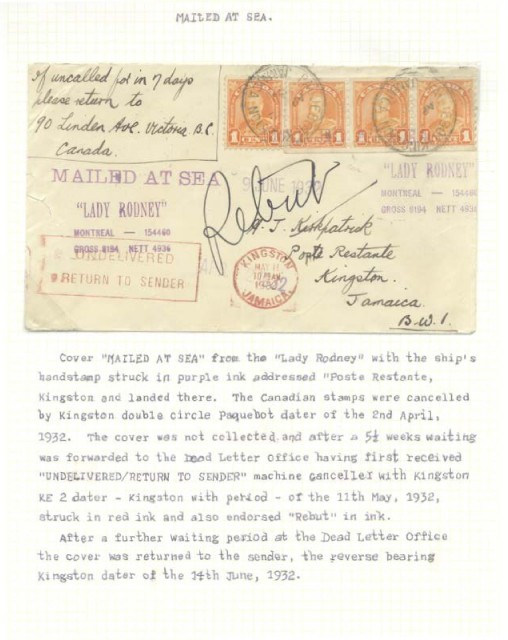 MAILED AT SEA.
If uncalled for in 7 days
please return to
90 Linden Ave. Victoria B.C.
Canada.
1 1 1 1 1 1 1
MAILED AT SEA
"LADY RODNEY"
MONTREAL — 154460
GROSS 8194 NETT 4936
9 JUNE 1932
Rebut
"LADY RODNEY"
MONTREAL — 154460
GROSS 8194 NETT 4936
UNDELIVERED
RETURN TO SENDER
KINGSTON
MAY 11
1932
JAMAICA
A. J. Kirkpatrick
Poste Restante
Kingston.
Jamaica.
B.W.I.
Cover "MAILED AT SEA" from the "Lady Rodney" with the ship's
handstamp struck in purple ink addressed "Poste Restante,
Kingston and landed there. The Canadian stamps were cancelled
by Kingston double circle Paquebot dater of the 2nd April,
1932. The cover was not collected and after a 5½ weeks waiting
was forwarded to the Dead Letter Office having first received
"UNDELIVERED/RETURN TO SENDER" machine cancelled with Kingston
RE 2 dater - Kingston with period - of the 11th May, 1932,
struck in red ink and also endorsed "Rebut" in ink.
After a further waiting period at the Dead Letter Office
the cover was returned to the sender, the reverse bearing
Kingston dater of the 14th June, 1932.